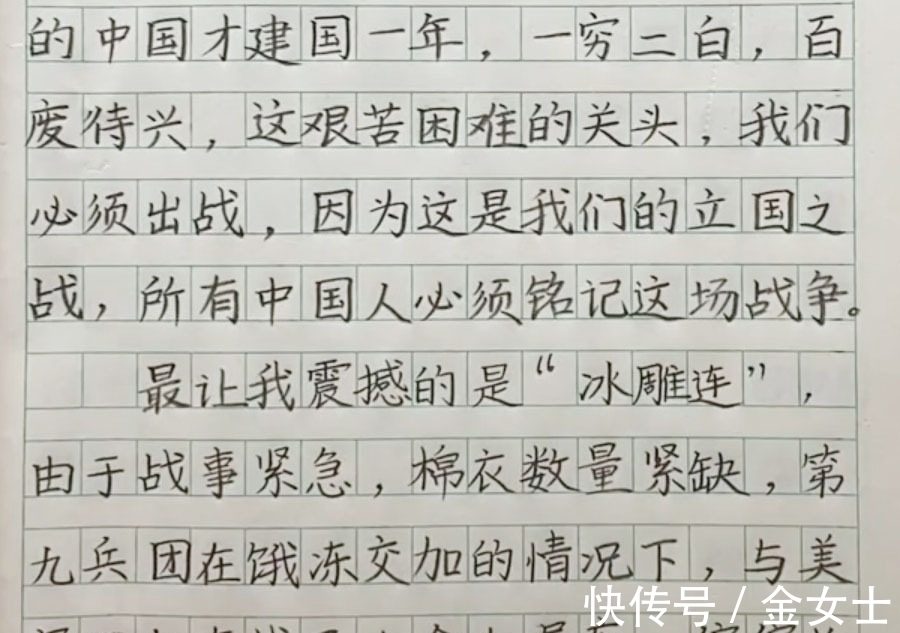 的中国才建国一年，一穷二白，百
废待兴，这艰苦困难的关头，我们
必须出战，因为这是我们的立国之
战，所有中国人必须铭记这场战争。
最让我震撼的是“冰雕连”，
由于战事紧急，棉衣数量紧缺，第
九兵团在饿冻交加的情况下，与美
快传号/金女士